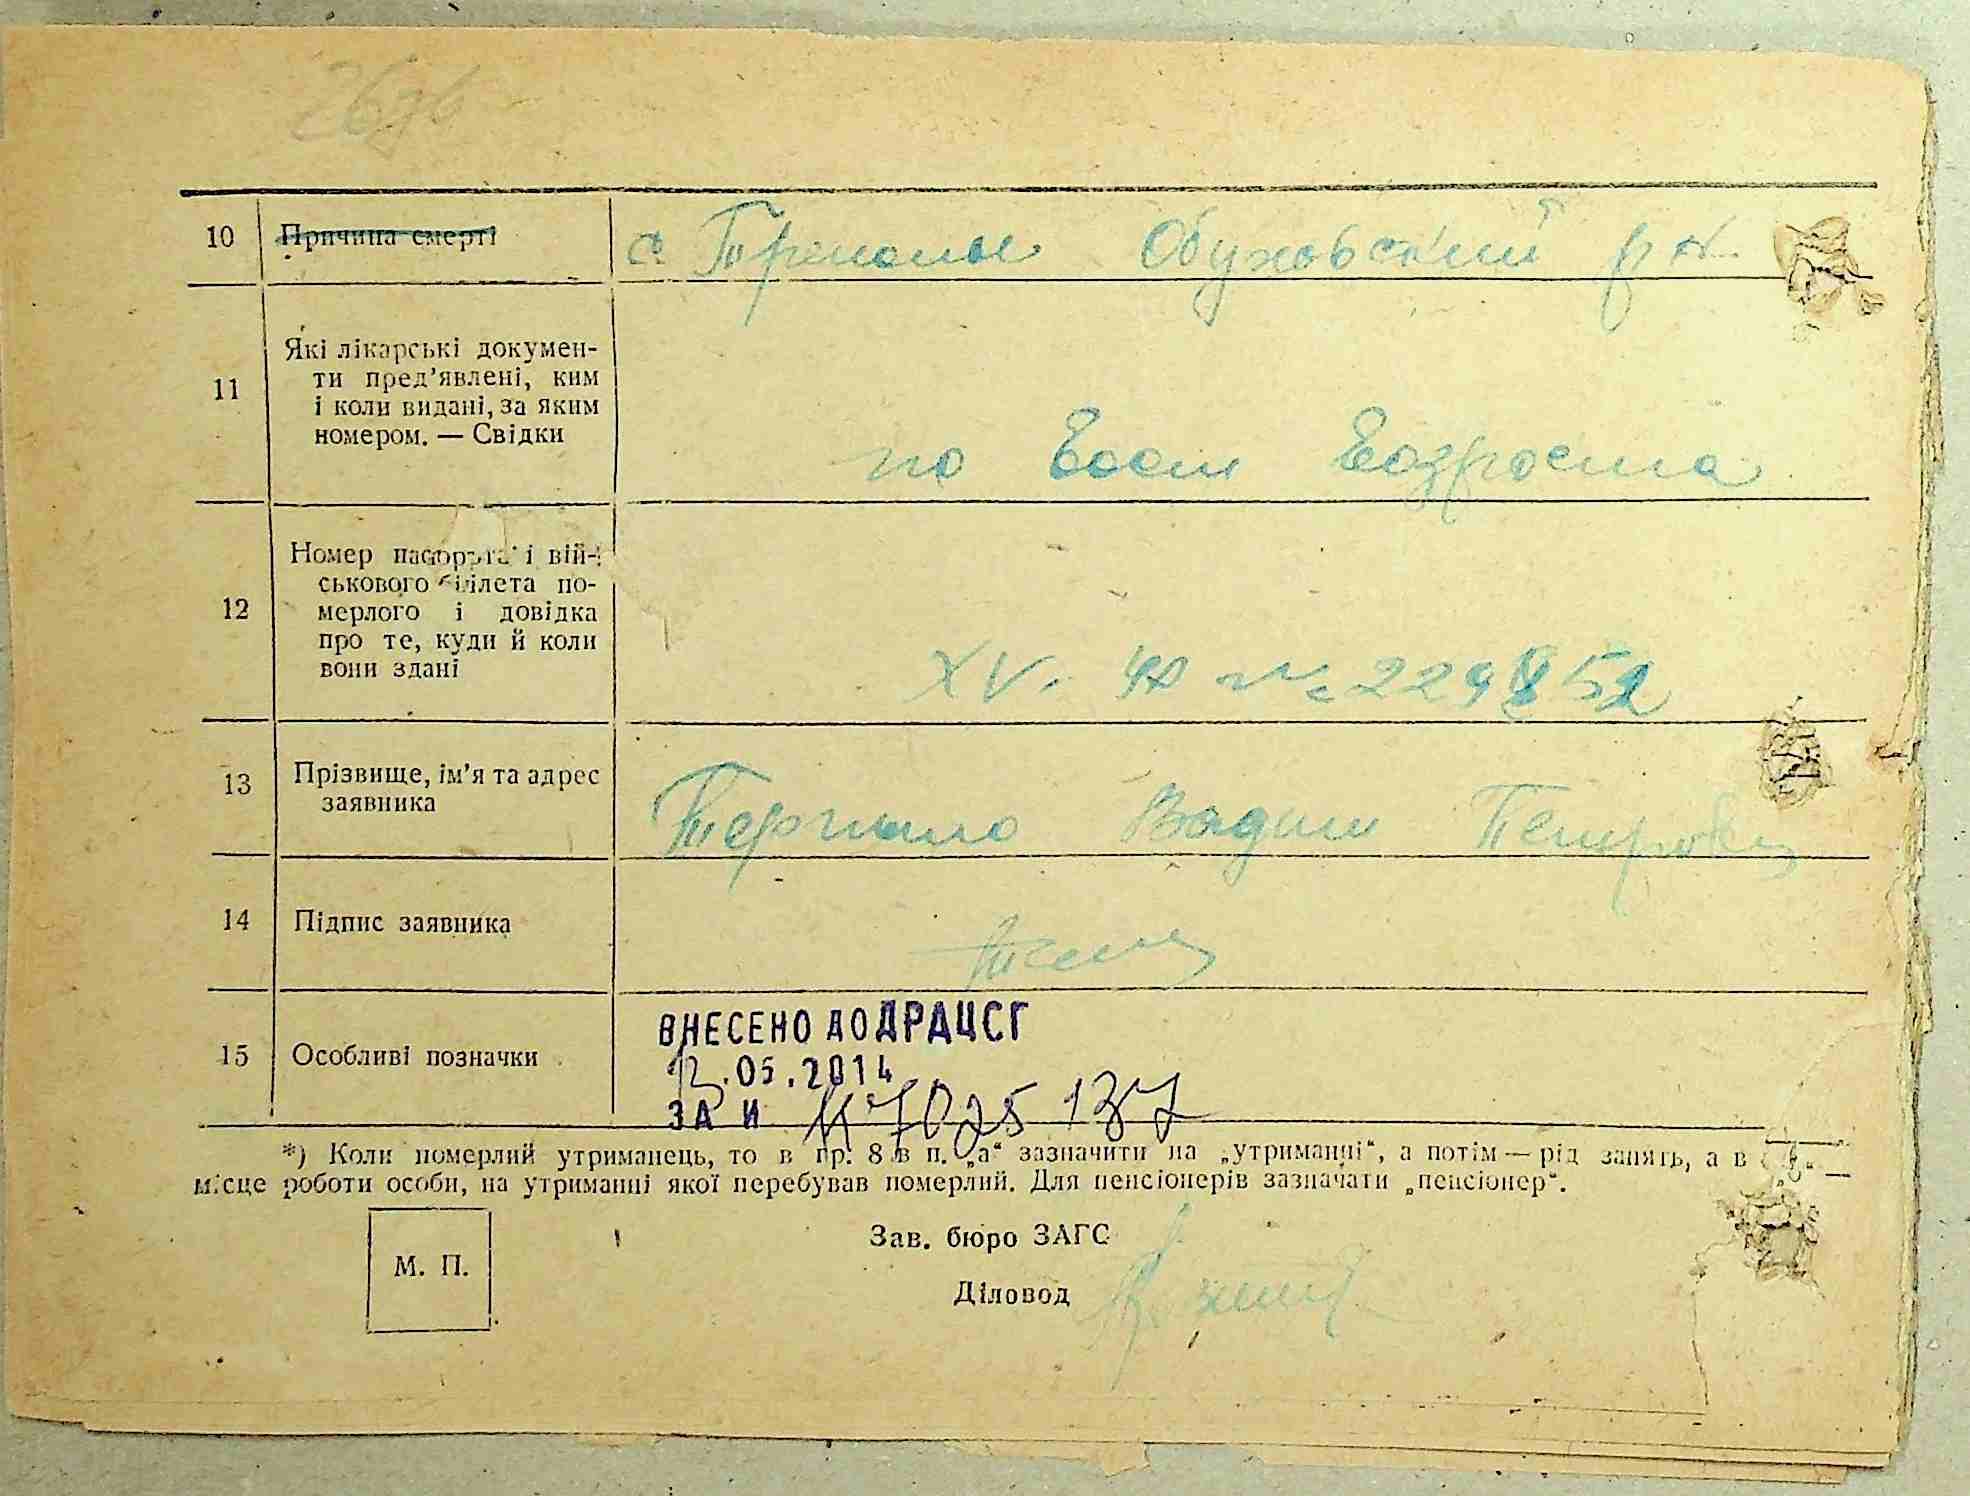 10 Причина смерті с. Триполье Обуховский р н.
11 Які лікарські докумен-
ти пред'явлені, ким
і коли видані, за яким
номером. — Свідки
по возроста
12 Номер паспорта і вій-
ськового білета по-
мерлого і довідка
про те, куди й коли
вони здані
XV.
13 Прізвище, ім'я та адрес
заявника
Терпило Вадим Петрович
14 Підпис заявника
15 Особливі позначки
ВНЕСЕНО ДО ДРАЦСГ
12.05.2014
ЗА И 17025137
*) Коли померлий утриманець, то в гр. 8 в п. „а“ зазначити на „утриманні“, а потім — рід занять, а в
місце роботи особи, на утриманні якої перебував померлий. Для пенсіонерів зазначати „пенсіонер“.
Зав. бюро ЗАГС
М. П.
Діловод